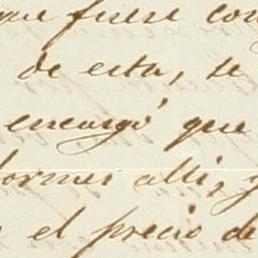 que fuese con
de esta, se
encargó que
formes alli, y
el precio de